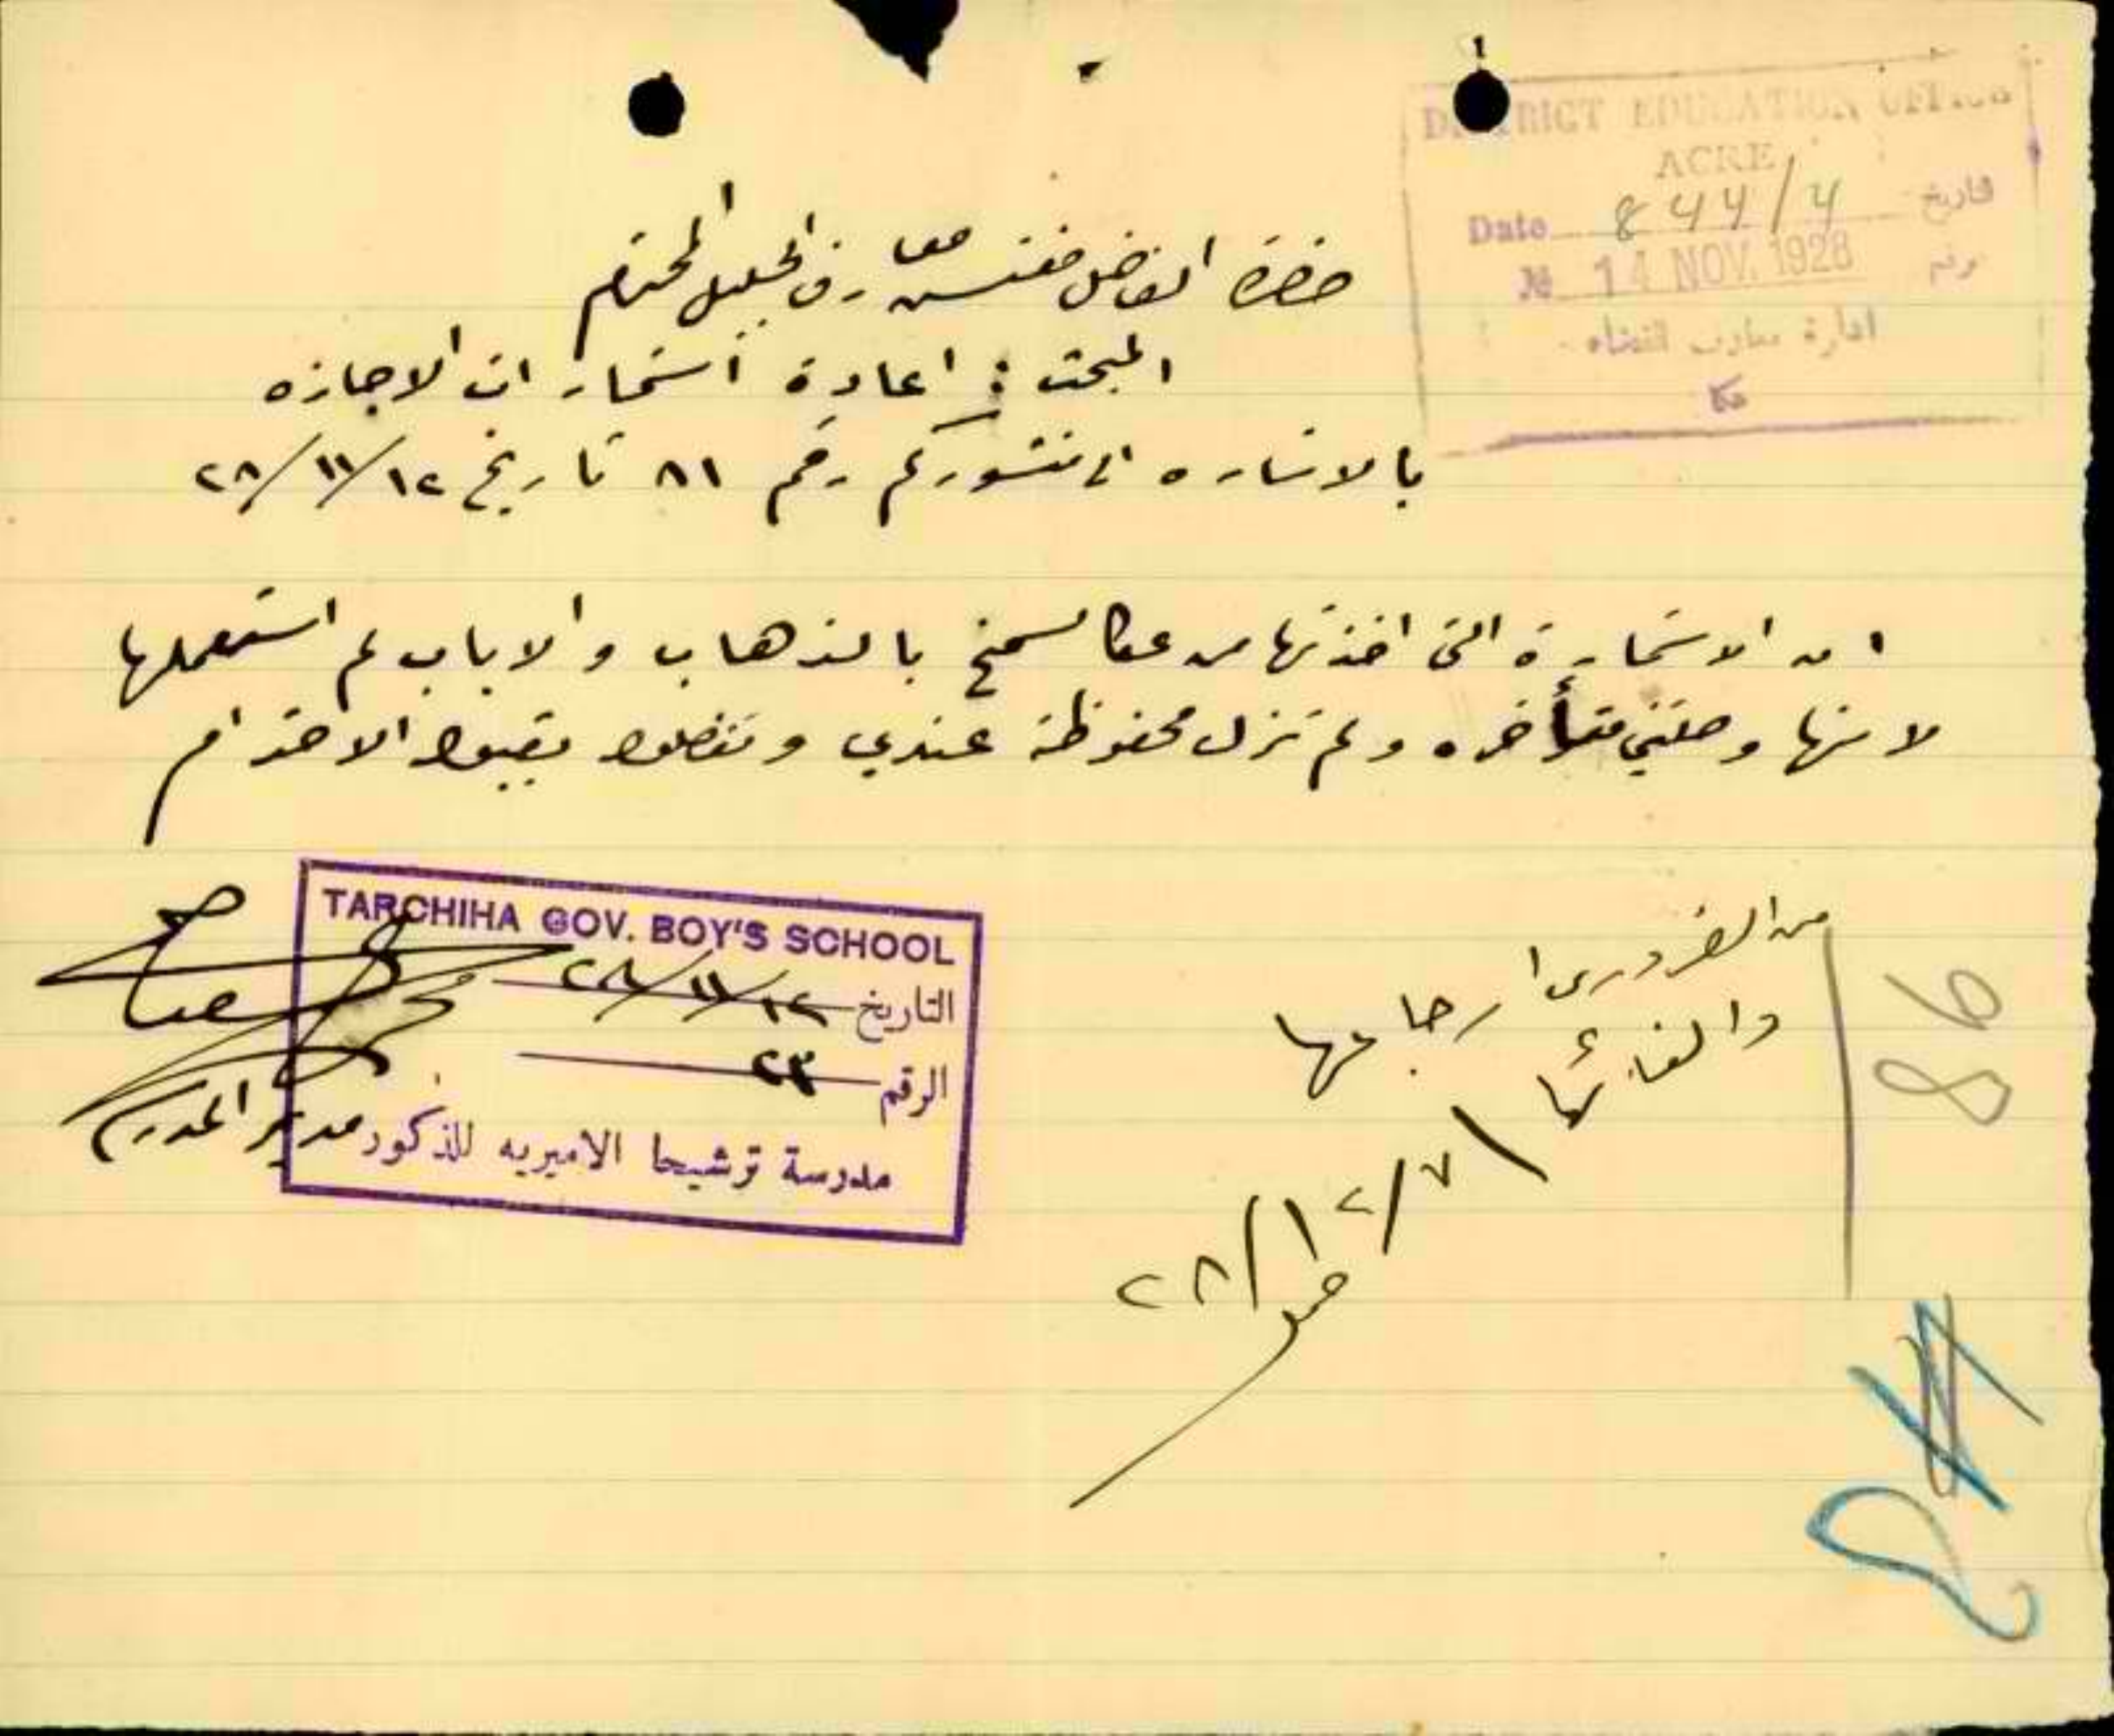 DISTRICT EDUCATION OFFICE
ACRE
Date 844/4 تاريخ
№ 14 NOV. 1928 رقم
ادارة معارف القضاء
عكا
حضرة الفاضل مفتش معارف الجليل المحترم
المبحث : اعادة استمارات الاجازه
بالاشاره الى منشوركم رقم ٨١ تاريخ ١٢/١١/٢٨
ان الاستمارة التي اخذتها من عكا لسحنح بالذهاب والاياب لم استعملها
لانها وصلتني متأخره ولم تزل محفوظة عندي وتفضلوا بقبول الاحترام
TARCHIHA GOV. BOY'S SCHOOL
التاريخ ١٢/١١/٢٨
الرقم ٢٣
مدرسة ترشيحا الاميريه للذكور
مدير المدرسة
من الضروري ارجاعها
والغائها
٧/١٢/٢٨
86